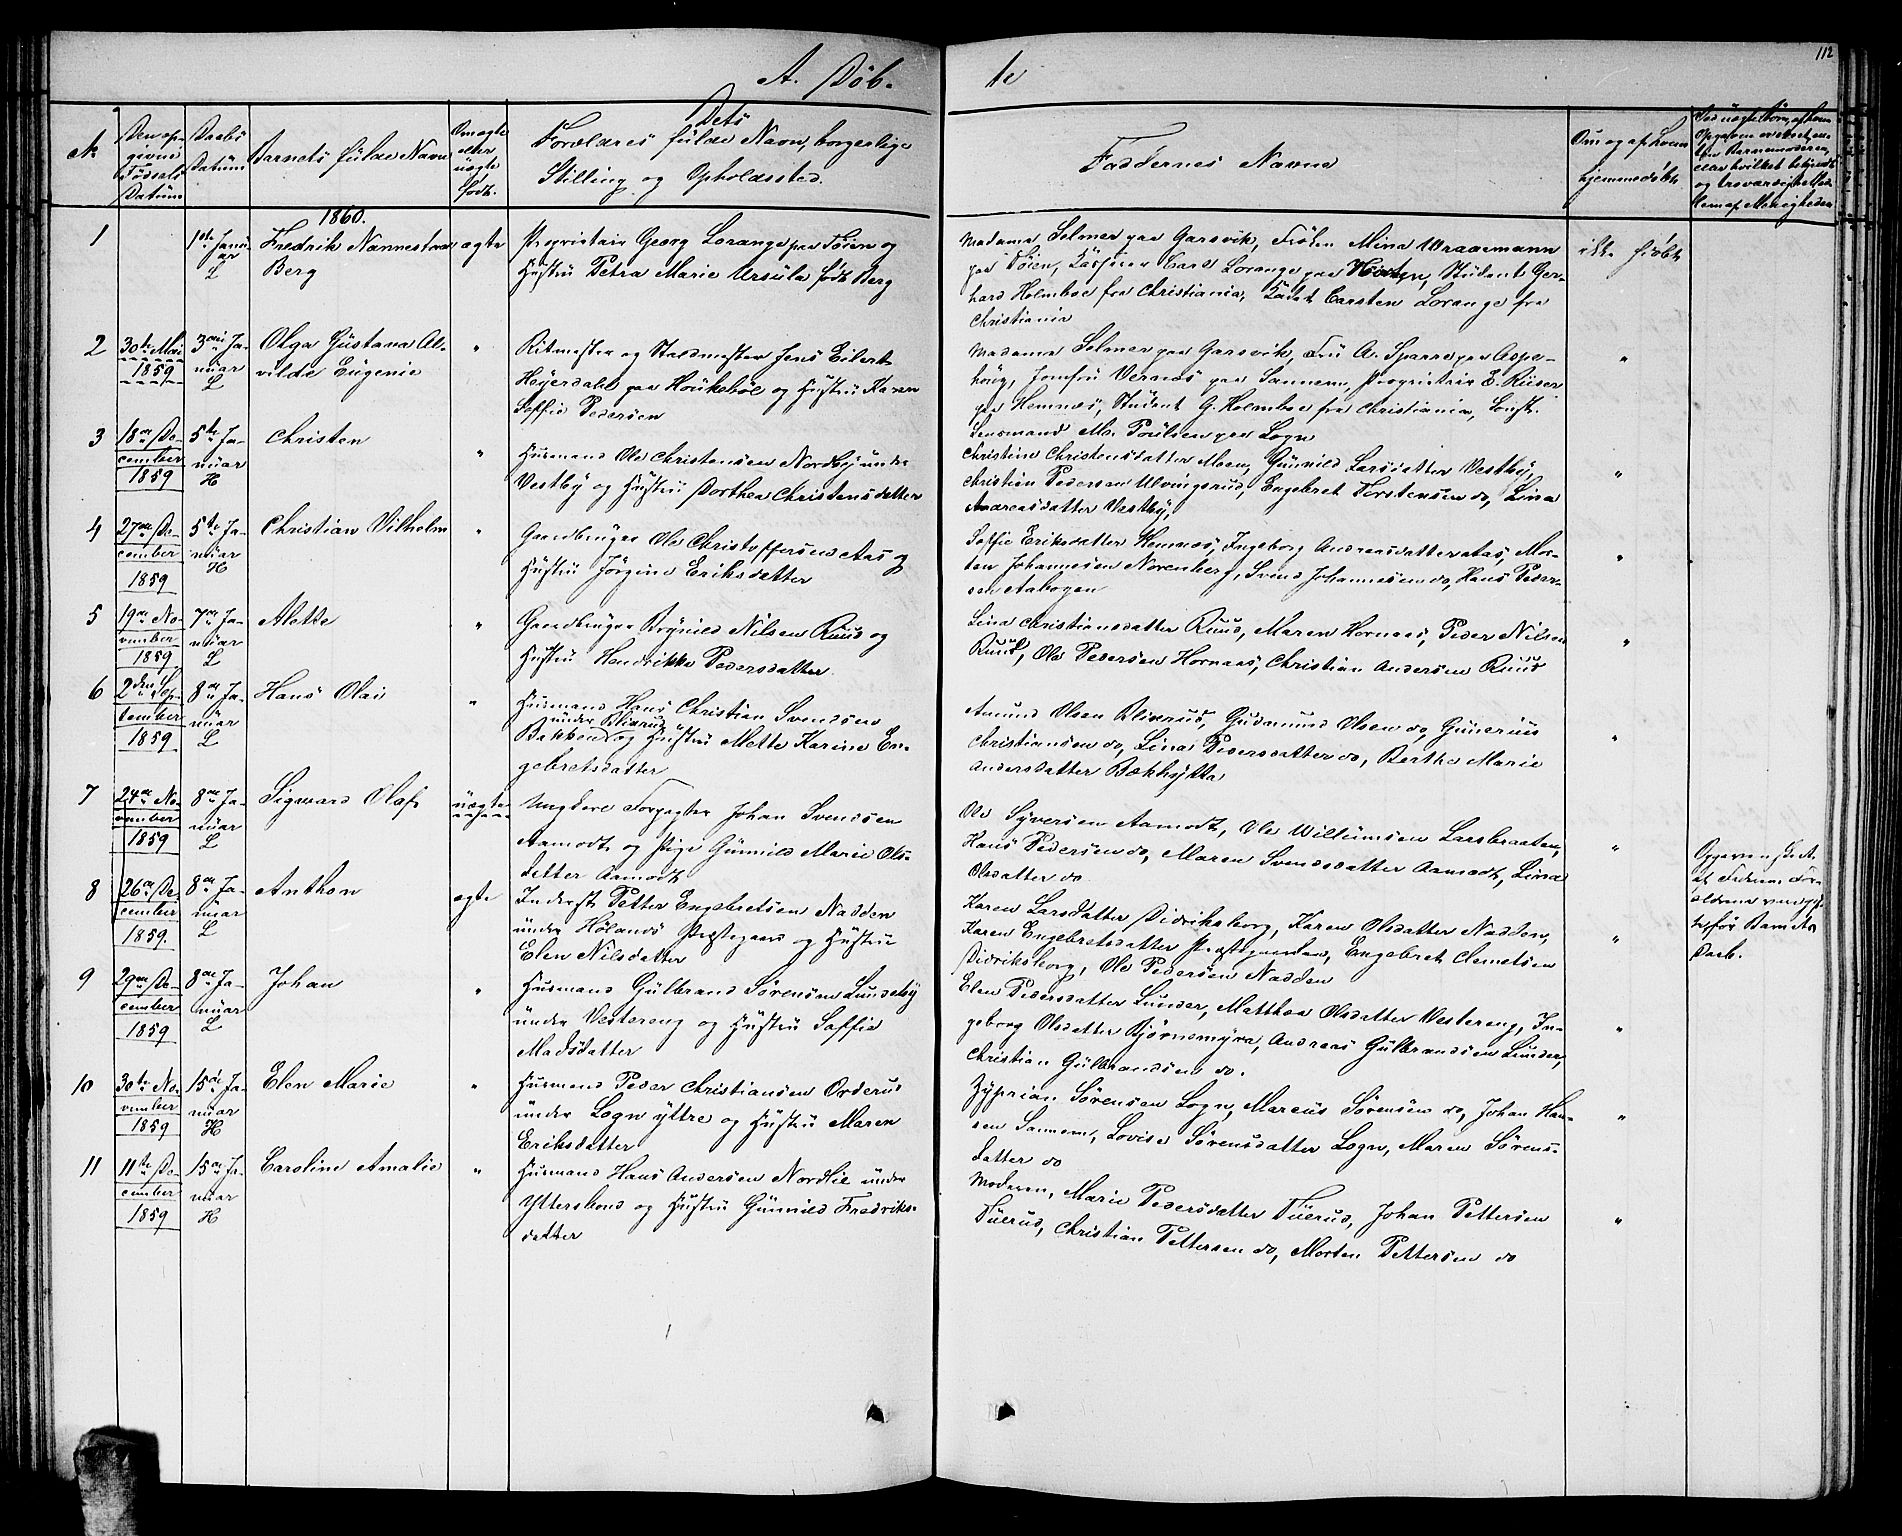 112
A. Døb-
te
No
Den op-
givne
Fødsels
Datum
Daabs
Datum
Barnets fulde Navn
Om ægte
eller
uægte
født.
Dets
Forældres fulde Navn, borgerlige
Stilling og Opholdssted.
Faddernes Navne
Om og af hvem
hjemmedøbt
1860.
1
1ste Janu
ar
L
Fredrik Nannestad
Berg
ægte
Proprietair Georg Lorange paa Tøien og
Hustru Petra Marie Ursula født Berg
Madame Selmer paa Garsvik, Frøken Mina
paa Tøien, Carl Lorange paa Student Ger-
hard Holmboe fra Christiania, Kadet Carsten Lorange fra
Christiania
ikke hjdbt
2
30te Mai
1859
3die Ja-
nuar
L
Olga Gustava Al-
vilde Eugenie
"
Ritmester og Staldmester Jens Eilert
Heyerdahl paa Houkebøl og Hustru Karen
Soffie Pedersen
Madame Selmer paa Garsvik, Fru A. Sparre paa Aspe-
houg, Jomfru Vernæs paa Sannem, Proprietair E. Riiser
paa Hemnæs, Student G. Holmboe fra Christiania, Const.
Lensmand M. Poulsen paa Logn
"
3
18de De-
cember
1859
5te Ja-
nuar
H
Christen
"
Husmand Ole Christensen Nordby under
Vestby og Hustru Dorthea Christensdatter
Christine Christensdatter Moen, Gunild Larsdatter Vestby,
Christian Pedersen Ulvingsrud, Engebret Torstensen do, Lina
Andreasdatter Vestby,
"
4
27de De-
cember
1859
5te Ja-
nuar
H
Christian Vilhelm
"
Gaardbruger Ole Christoffersen Aas og
Hustru Jørgine Eriksdatter
Soffie Eriksdatter Hemnæs, Ingeborg Andreasdatter Aas, Mor-
ten Johannesen Norenberg, Svend Johannesen do, Hans Peder-
sen Aabogen
"
5
19de No-
vember
1859
7de Ja-
nuar
L
Mette
"
Gaardbruger Brynild Nilsen Ruud og
Hustru Hendrikke Pedersdatter
Lina Christiansdatter Ruud, Maren Hornæs, Peder Nilsen
Ruud, Ole Pedersen Hornæs, Christian Andersen Ruud
"
6
2den Sep-
tember
1859
8de Ja-
nuar
L
Hans Olai
"
Husmand Hans Christian Svendsen
under Blixrud
Bakken og Hustru Mette Karine En-
gebretsdatter
Amund Olsen Blixrud, Gudmund Olsen do, Gunerius
Christiansen do, Lina Pedersdatter do, Berthe Marie
Andersdatter Bækhytta
"
7
24de No-
vember
1859
8de Ja-
nuar
L
Sigvard Olaf
uægte
Ungkarl Forpagter Johan Svendsen
Aamodt og Pige Gunild Marie Ols-
datter Aamodt
Ole Syversen Aamodt, Ole Willumsen Larsbraaten,
Hans Pedersen do, Maren Svendsdatter Aamodt, Lina
Olsdatter do
"
8
26de De-
cember
1859.
8de Ja-
nuar
L
Anthon
ægte
Inderst Petter Engebretsen Nadden
under Hølands Præstegaard og Hustru
Elen Nilsdatter
Karen Larsdatter Didriksborg, Karen Olsdatter Nadden,
Karen Engebretsdatter Præstegaarden, Engebret Clemetsen
Didriksborg, Ole Pedersen Nadden
"
9
29de De-
cember
1859
8de Ja-
nuar
L
Johan
"
Husmand Gulbrand Sørensen Lundeby
under Vestereng og Hustru Soffie
Madsdatter
Elen Pedersdatter Lunder, Matthea Olsdatter Vestereng, In-
geborg Olsdatter Bjørnemyra, Andreas Gulbrandsen Lunder,
Christian Gulbrandsen do.
"
10
30te No-
vember
1859
15de Ja-
nuar
H
Elen Marie
"
Husmand Peder Christiansen Orderud
under Logn yttre og Hustru Maren
Eriksdatter
Zyprian Sørensen Logn, Marcus Sørensen do, Johan Han-
sen Sannem, Lovise Sørensdatter Logn, Maren Sørens-
datter do
"
11
11te De-
cember
1859
15de Ja-
nuar
H
Caroline Amalie
"
Husmand Hans Andersen Nordlie under
Ytterskoud og Hustru Gunild Fredriks-
datter
Moderen, Marie Pedersdatter Tuerud, Johan Pettersen
Tuerud, Christian Pettersen do, Morten Pettersen do
"